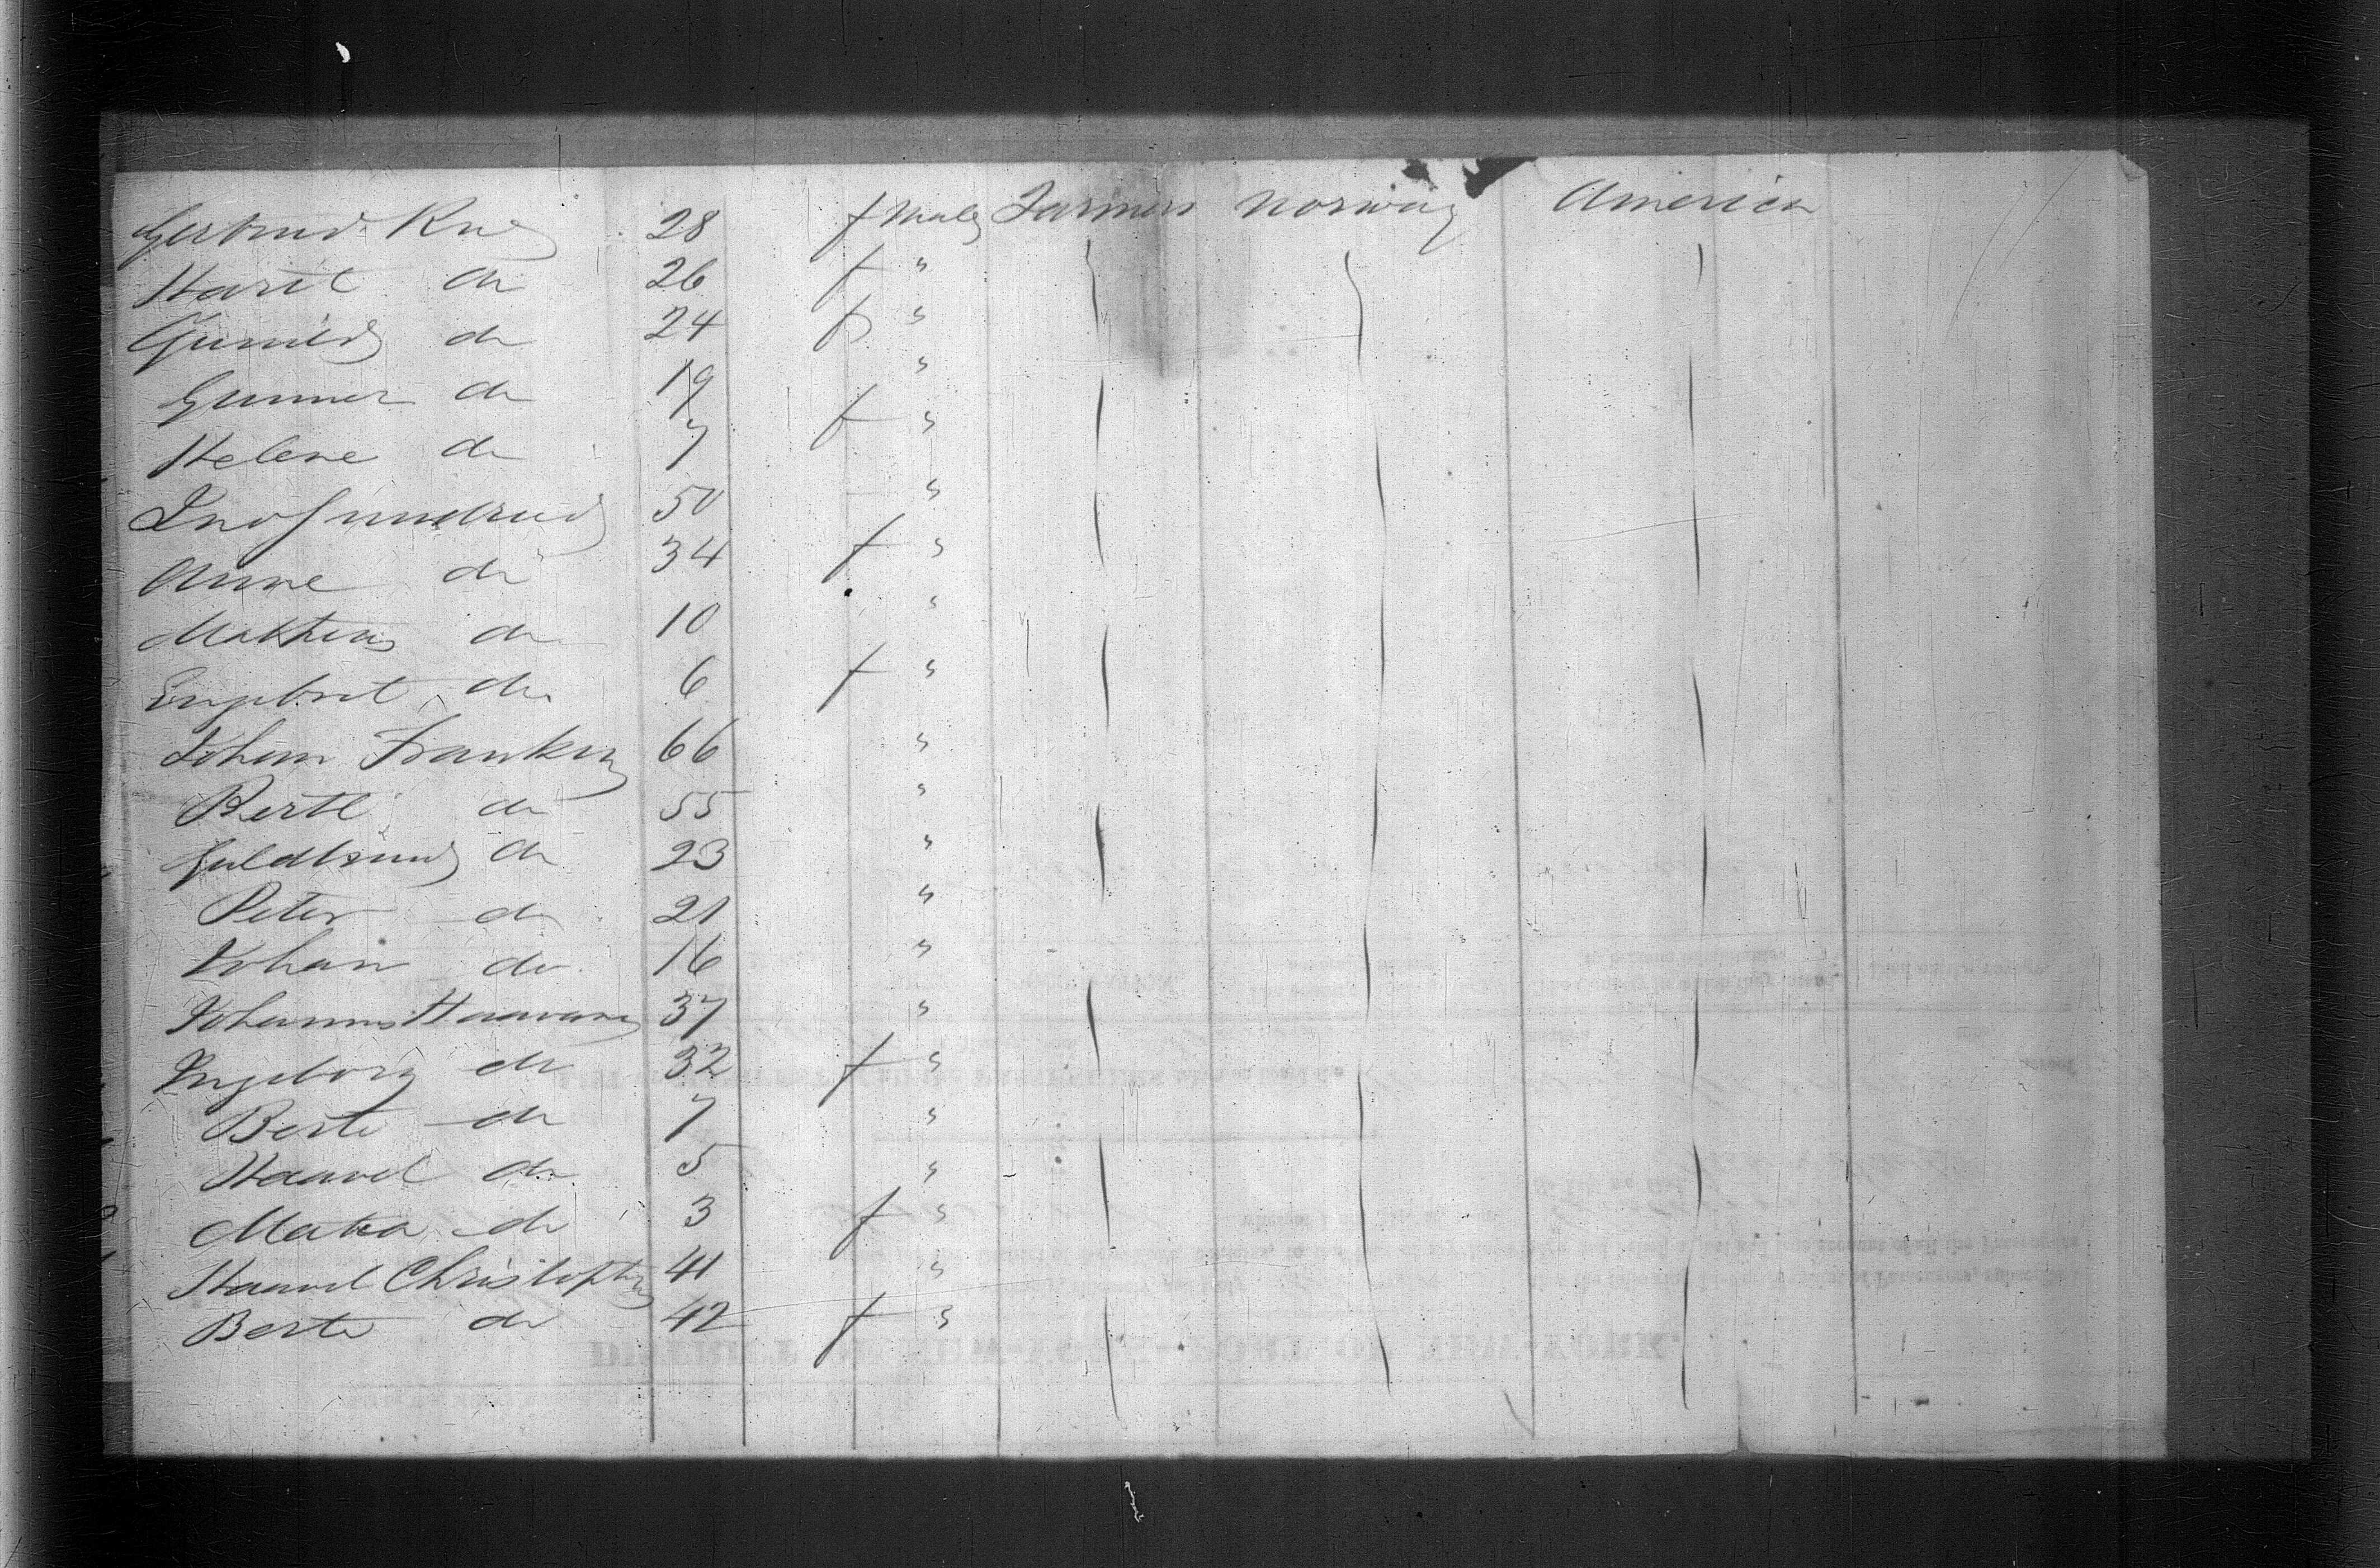 Gertrud Rue 28 f Male Farmers Norway America
Harit do 26 f "
Gunild do 24 f "
Gunner do 19 "
Helene do 7 f "
50 "
Anne do 34 f "
Mathias do 10 "
Engebret do 6 f "
Johan Franken 66 "
Berte do 55 "
Guldbrand do 23 "
Peter do 21 "
Johan do 16 "
Johannes Haavare 37 "
Ingeborg do 32 f "
Berte do 7 "
Haavel do 5 "
Matea do 3 f "
Haavel Christophe 41 "
Berte do 42 f "